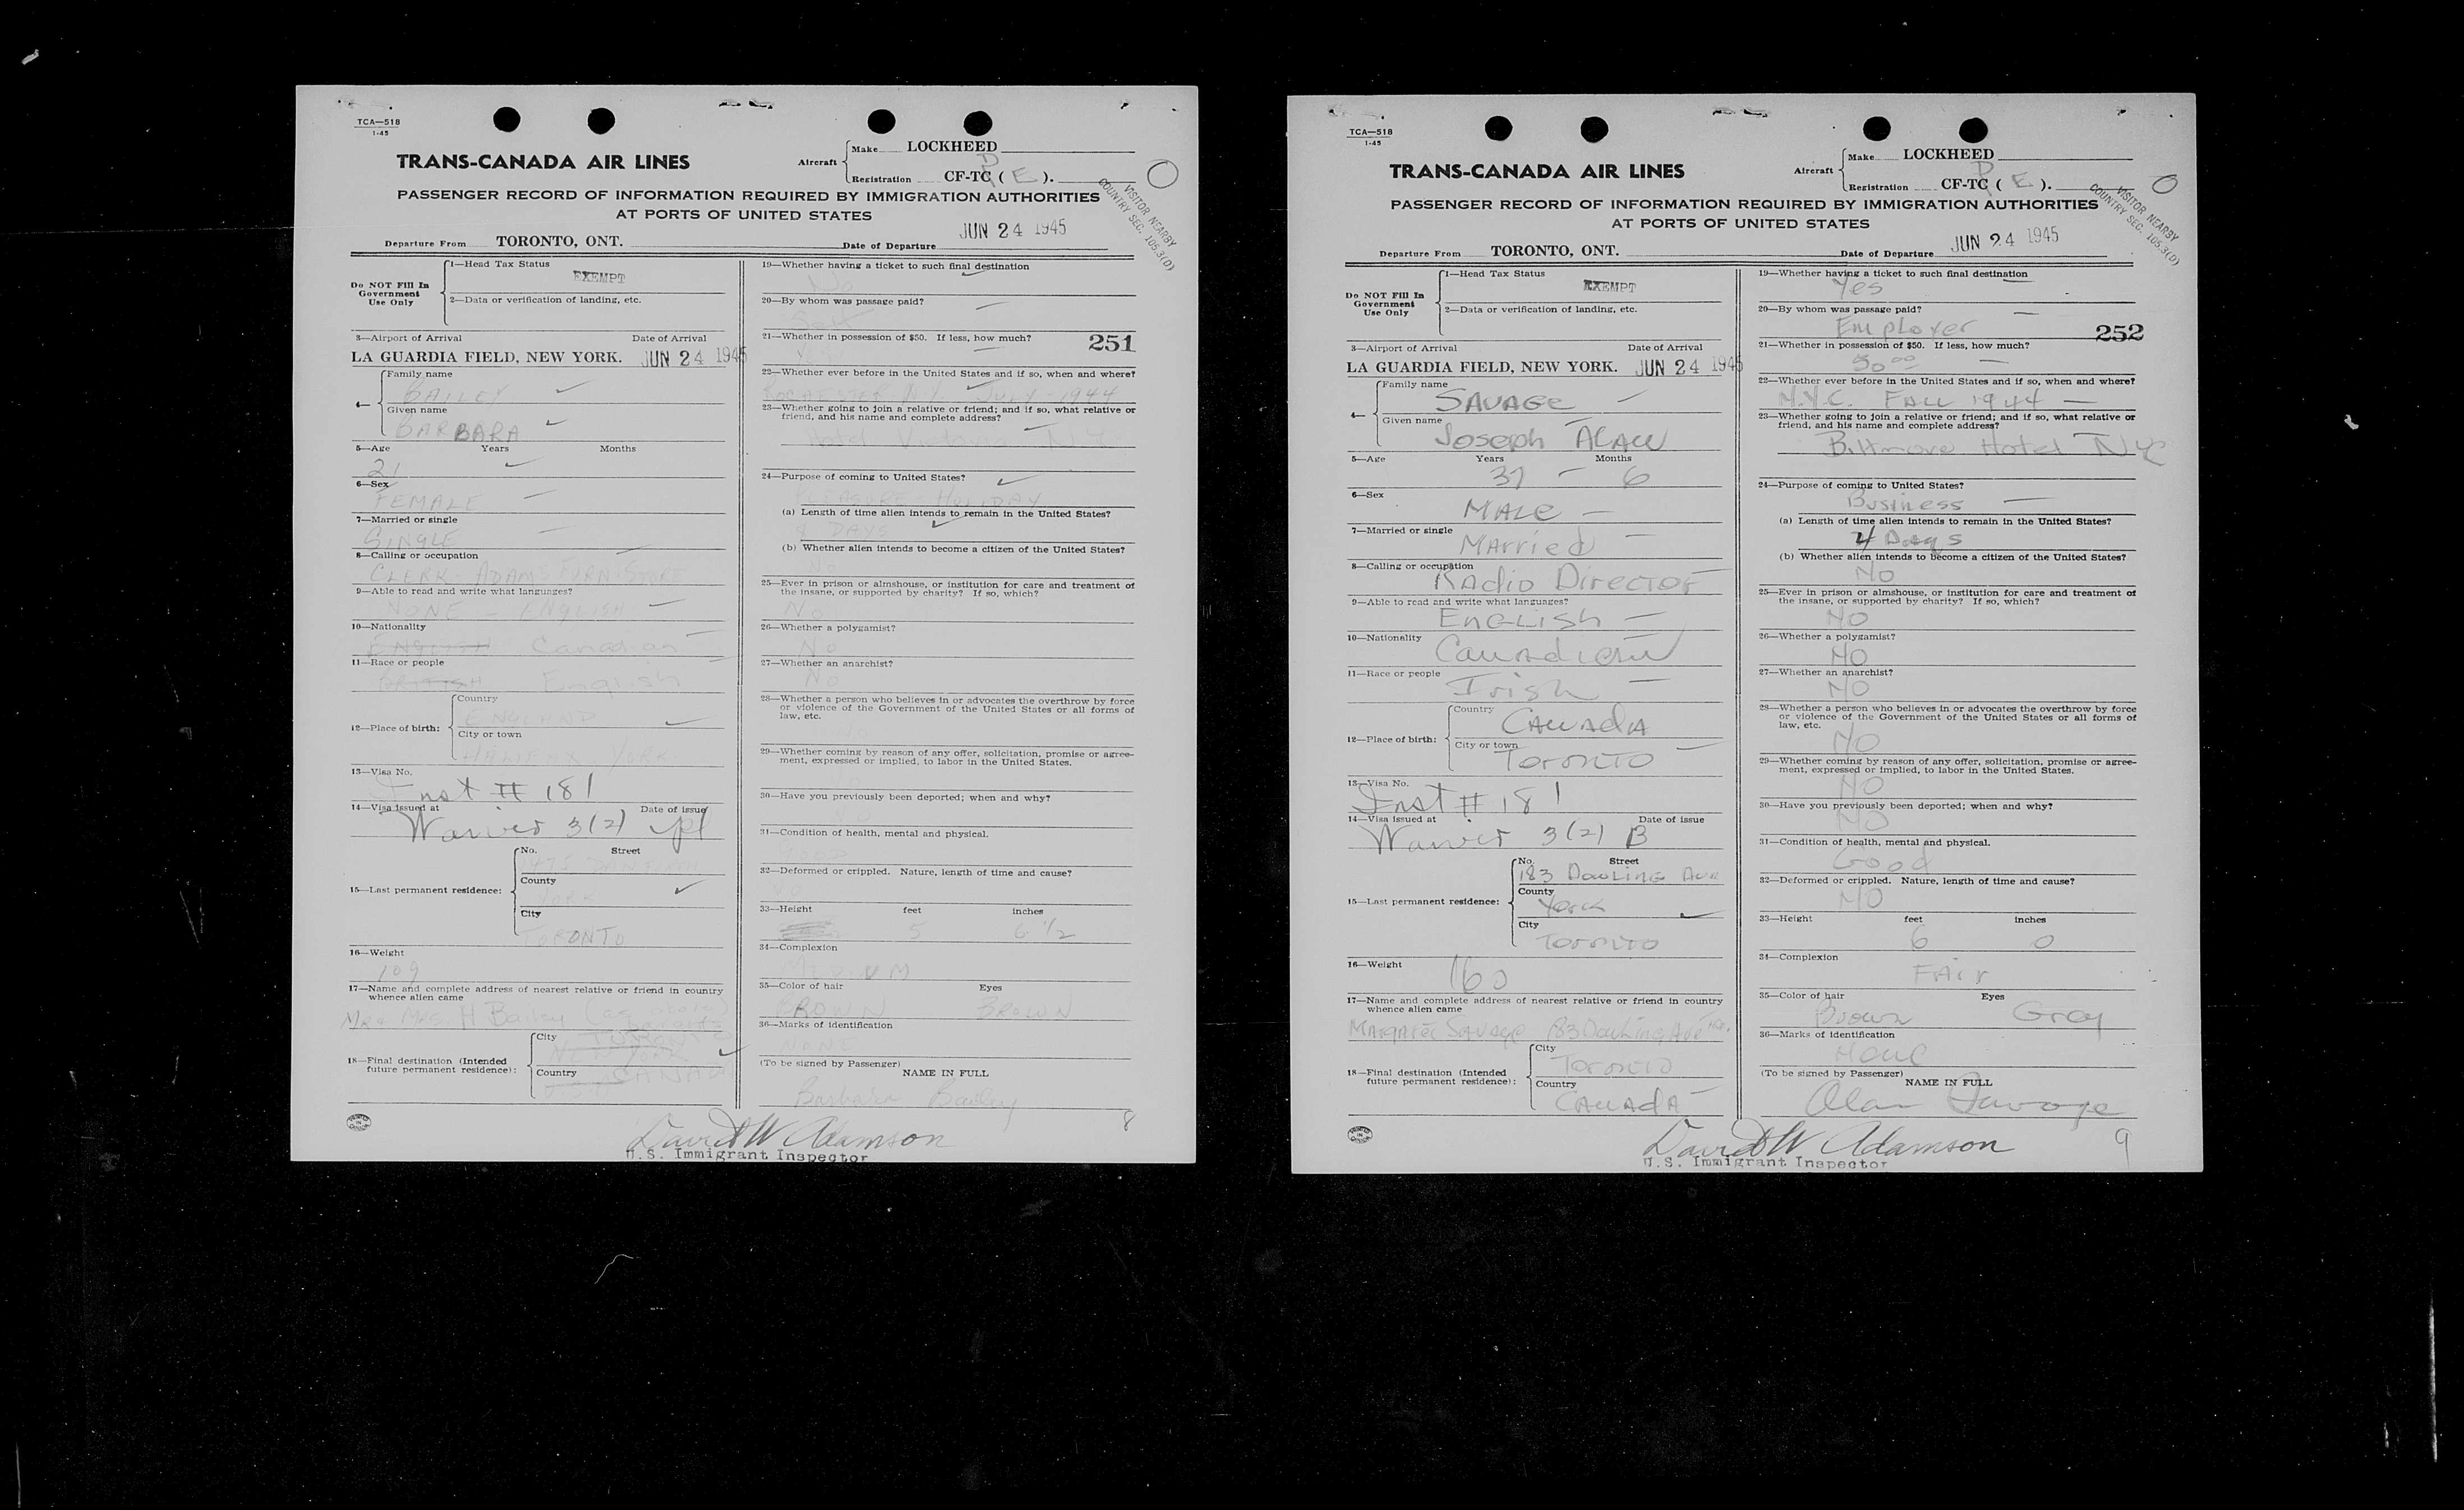 TCA—518
1-45
TRANS-CANADA AIR LINES
Aircraft
Make LOCKHEED
Registration CF-TC ( E ).
PASSENGER RECORD OF INFORMATION REQUIRED BY IMMIGRATION AUTHORITIES
AT PORTS OF UNITED STATES
VISITOR NEARBY
COUNTRY SEC. 105.3(D)
Departure From TORONTO, ONT. Date of Departure JUN 24 1945
Do NOT Fill In Government Use Only
1—Head Tax Status
EXEMPT
2—Data or verification of landing, etc.
3—Airport of Arrival Date of Arrival
LA GUARDIA FIELD, NEW YORK. JUN 24 1945
4—
Family name
BAILEY
Given name
BARBARA
5—Age Years Months
21
6—Sex
FEMALE
7—Married or single
SINGLE
8—Calling or occupation
CLERK ADAMS FURN. STORE
9—Able to read and write what languages?
NONE - ENGLISH
10—Nationality
ENGLISH Canadian
11—Race or people
BRITISH English
12—Place of birth:
Country
ENGLAND
City or town
HALIFAX YORK
13—Visa No.
Inst # 181
14—Visa issued at Date of issue
Waiver 3(2)
15—Last permanent residence:
No. Street
County
YORK
City
TORONTO
16—Weight
109
17—Name and complete address of nearest relative or friend in country
whence alien came
Mrs. H Bailey (as above)
18—Final destination (Intended
future permanent residence):
City
TORONTO
NEW YORK
Country
CANADA
U.S.A.
19—Whether having a ticket to such final destination
No
20—By whom was passage paid?
Self
21—Whether in possession of $50. If less, how much?
251
22—Whether ever before in the United States and if so, when and where?
ROCHESTER N.Y. JULY - 1944
23—Whether going to join a relative or friend; and if so, what relative or
friend, and his name and complete address?
Hotel Victoria N.Y.
24—Purpose of coming to United States?
PLEASURE - HOLIDAY
(a) Length of time alien intends to remain in the United States?
DAYS
(b) Whether alien intends to become a citizen of the United States?
No
25—Ever in prison or almshouse, or institution for care and treatment of
the insane, or supported by charity? If so, which?
No
26—Whether a polygamist?
No
27—Whether an anarchist?
No
28—Whether a person who believes in or advocates the overthrow by force
or violence of the Government of the United States or all forms of
law, etc.
No
29—Whether coming by reason of any offer, solicitation, promise or agree-
ment, expressed or implied, to labor in the United States.
30—Have you previously been deported; when and why?
31—Condition of health, mental and physical.
GOOD
32—Deformed or crippled. Nature, length of time and cause?
NO
33—Height feet inches
5 6 1/2
34—Complexion
MEDIUM
35—Color of hair Eyes
BROWN BROWN
36—Marks of identification
NONE
(To be signed by Passenger)
NAME IN FULL
Barbara Bailey
8
David W Adamson
U.S. Immigrant Inspector
TCA—518
1-45
TRANS-CANADA AIR LINES
Aircraft
Make LOCKHEED
Registration CF-TC ( E ).
PASSENGER RECORD OF INFORMATION REQUIRED BY IMMIGRATION AUTHORITIES
AT PORTS OF UNITED STATES
VISITOR NEARBY
COUNTRY SEC. 105.3(D)
Departure From TORONTO, ONT. Date of Departure JUN 24 1945
Do NOT Fill In Government Use Only
1—Head Tax Status
EXEMPT
2—Data or verification of landing, etc.
3—Airport of Arrival Date of Arrival
LA GUARDIA FIELD, NEW YORK. JUN 24 1945
4—
Family name
SAVAGE
Given name
Joseph ALAN
5—Age Years Months
37 - 6
6—Sex
MALE
7—Married or single
Married
8—Calling or occupation
Radio Director
9—Able to read and write what languages?
English
10—Nationality
Canadian
11—Race or people
Irish
12—Place of birth:
Country
Canada
City or town
Toronto
13—Visa No.
Inst # 181
14—Visa issued at Date of issue
Waiver 3(2) B
15—Last permanent residence:
No. Street
183 Dowling Ave
County
York
City
Toronto
16—Weight
160
17—Name and complete address of nearest relative or friend in country
whence alien came
Margaret Savage 183 Dowling Ave Tor.
18—Final destination (Intended
future permanent residence):
City
Toronto
Country
Canada
19—Whether having a ticket to such final destination
Yes
20—By whom was passage paid?
Employer
252
21—Whether in possession of $50. If less, how much?
50 00
22—Whether ever before in the United States and if so, when and where?
N.Y.C. FALL 1944
23—Whether going to join a relative or friend; and if so, what relative or
friend, and his name and complete address?
Biltmore Hotel NYC
24—Purpose of coming to United States?
Business
(a) Length of time alien intends to remain in the United States?
4 Days
(b) Whether alien intends to become a citizen of the United States?
No
25—Ever in prison or almshouse, or institution for care and treatment of
the insane, or supported by charity? If so, which?
NO
26—Whether a polygamist?
NO
27—Whether an anarchist?
NO
28—Whether a person who believes in or advocates the overthrow by force
or violence of the Government of the United States or all forms of
law, etc.
NO
29—Whether coming by reason of any offer, solicitation, promise or agree-
ment, expressed or implied, to labor in the United States.
NO
30—Have you previously been deported; when and why?
NO
31—Condition of health, mental and physical.
Good
32—Deformed or crippled. Nature, length of time and cause?
NO
33—Height feet inches
6 0
34—Complexion
Fair
35—Color of hair Eyes
Brown Gray
36—Marks of identification
None
(To be signed by Passenger)
NAME IN FULL
Alan Savage
9
David W Adamson
U.S. Immigrant Inspector